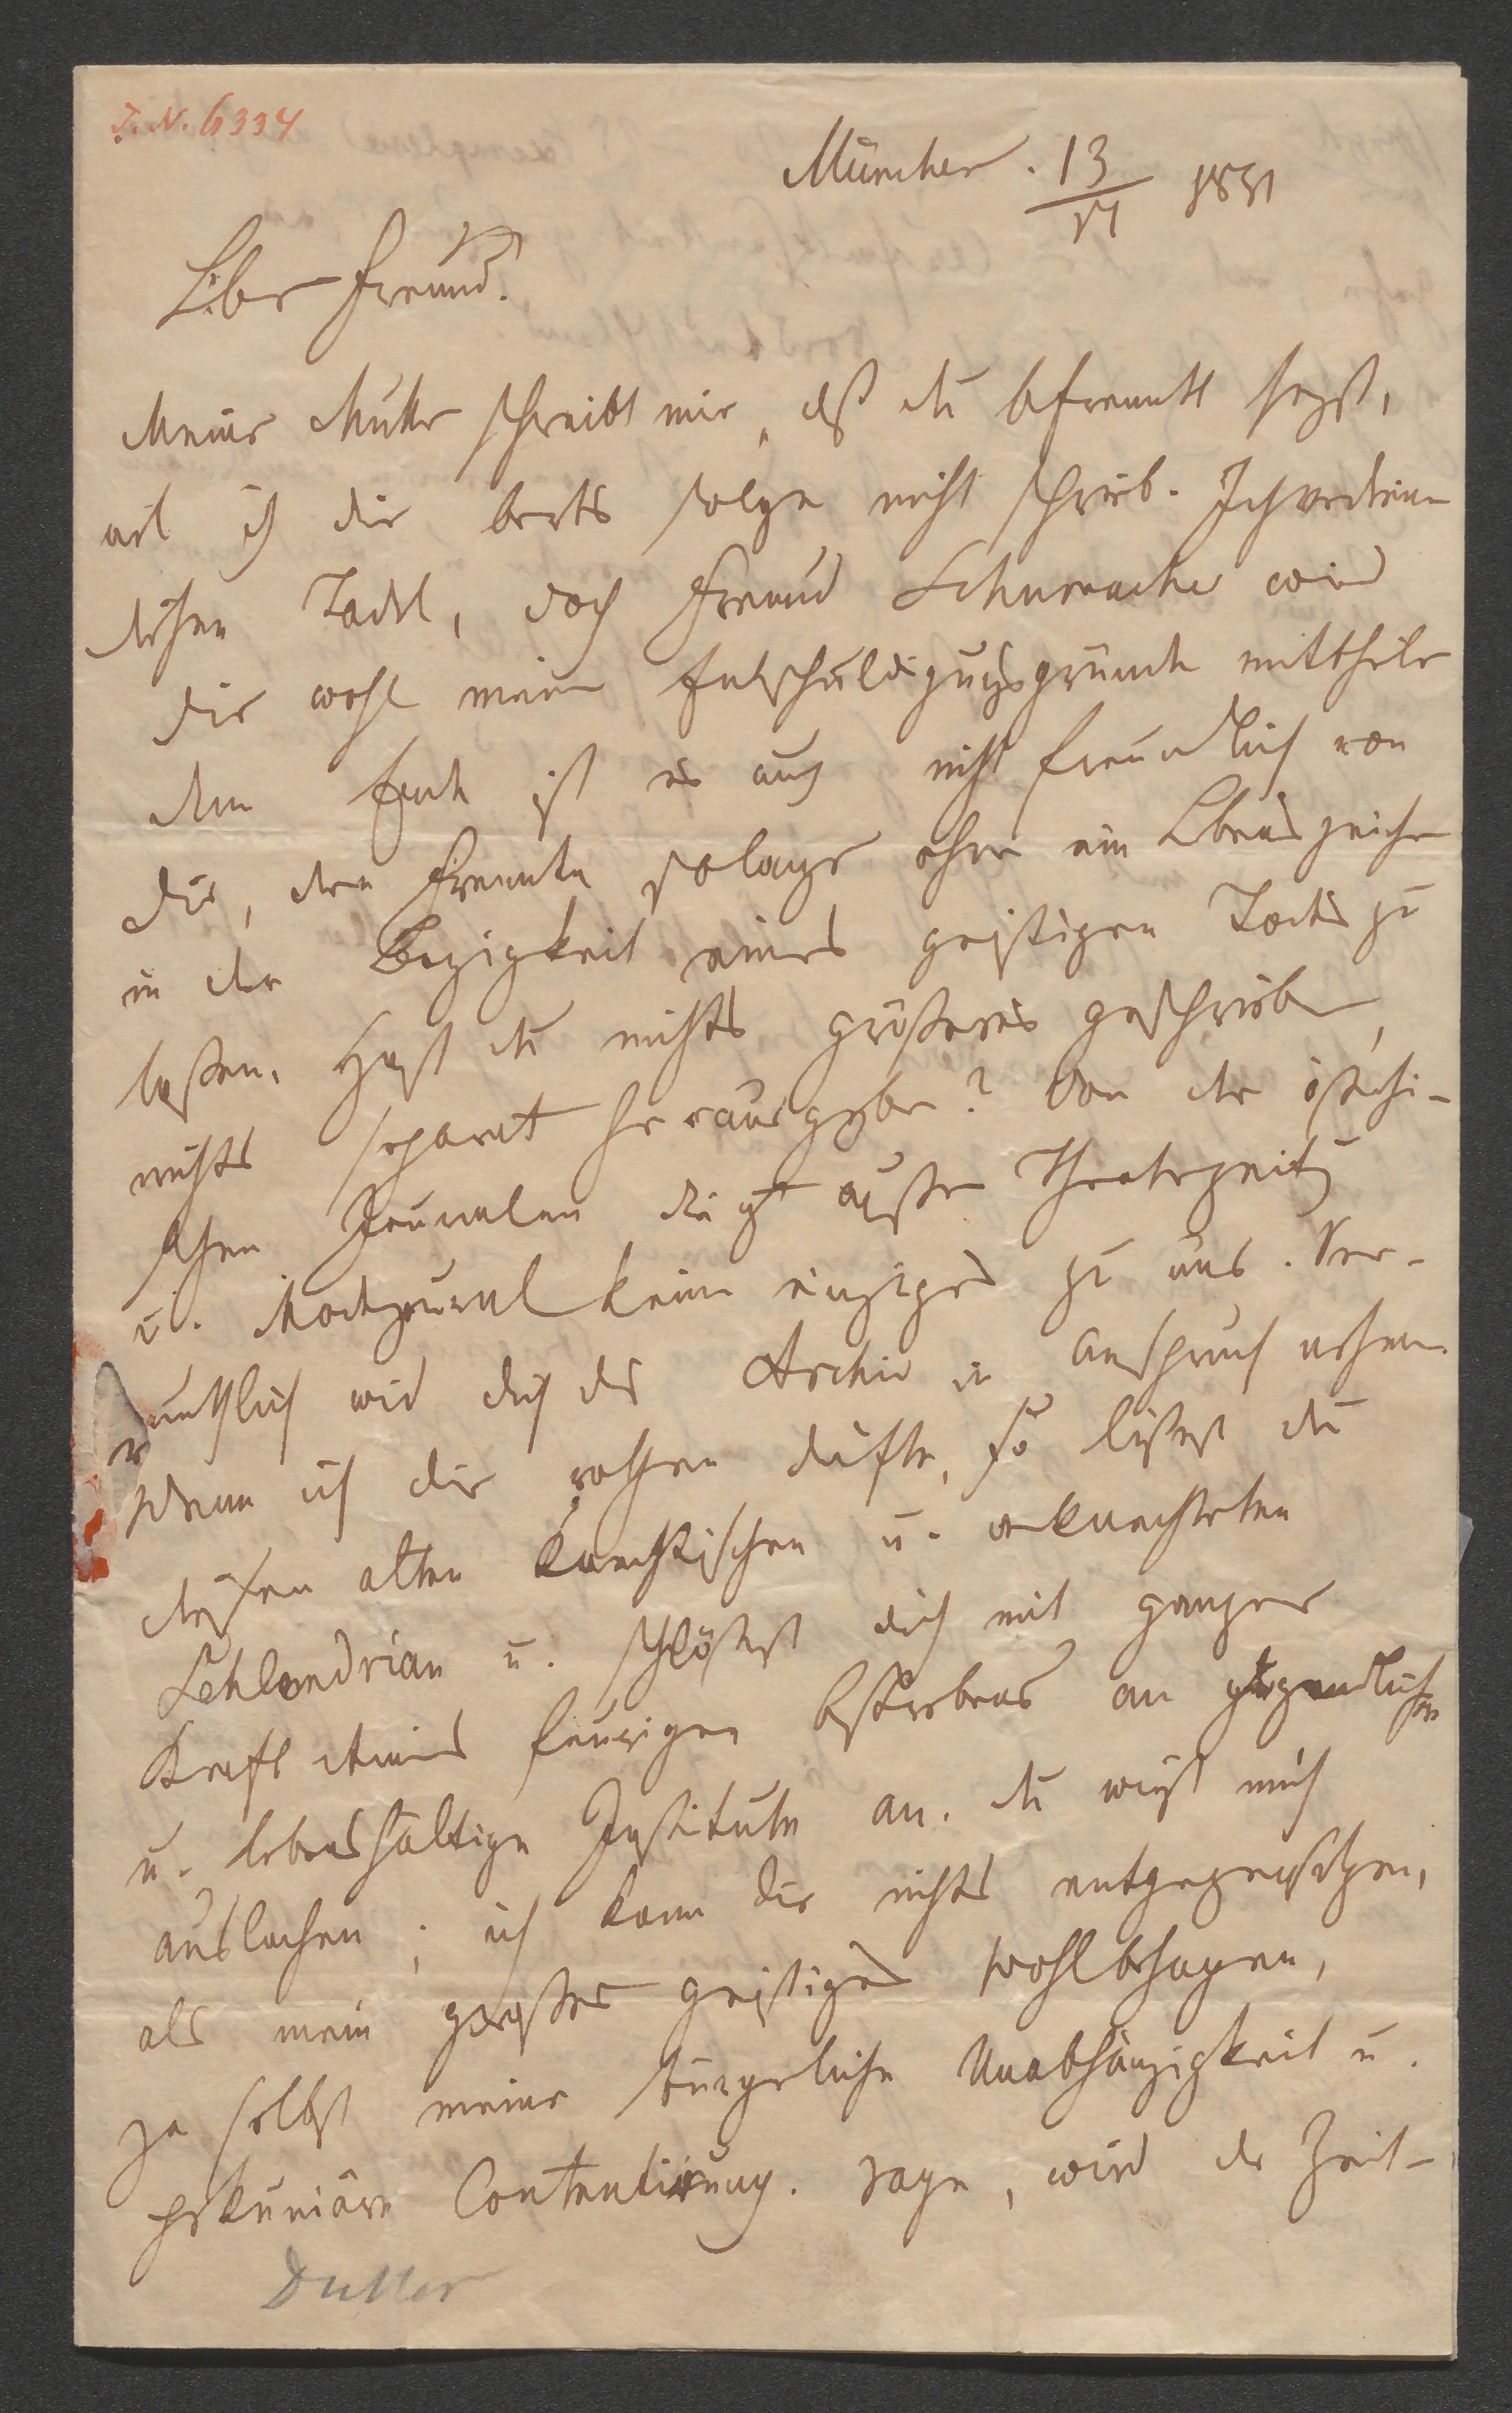 I. N. 6334
München. 13/VI 1831
Lieber Freund!
Meine Mutter schreibt mir, daß du befremdet seyst,
weil ich dir bereits solange nicht schrieb. Ich verdiene
diesen Tadel, doch Freund Schumacher wird
dir wohl meine Entschuldigungsgründe mittheilen
Am Ende ist es auch nicht freundlich von
dir, den Freunden solange ohne ein Lebenszeichen
in der eines geistigen Todes zu
lassen. Hast du nichts größeres geschrieben,
nichts separat herausgegeben? Von den östreichi-
schen Journalen dringt außer Theaterzeitung
u. Modejournal kein einziges zu uns. Ver-
muthlich wird dich das Archiv in Anspruch nehmen
Wenn ich dir rathen dürfte, so ließest du
diesen alten knechtischen u. verknechteten
Schlendrian u. schlößest dich mit ganzer
Kraft deines feurigen Bestrebens an
u. lebenshaltige Institute an. Du wirst mich
auslachen; ich kann dir nichts entgegensetzen,
als mein großes geistiges Wohlbehagen,
ja selbst meine bürgerliche Unabhängigkeit u.
pekuniäre Contentirung. Sage, wird der Zeit-
Duller